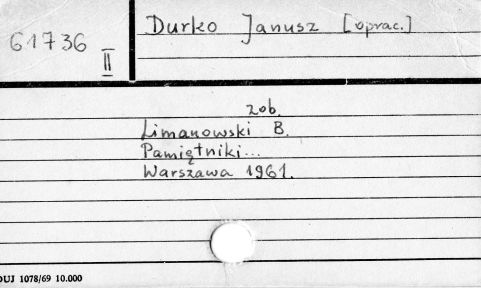 61736
II
Durko Janusz [oprac.]
zob.
Limanowski B.
Pamiętniki...
Warszawa 1961.
DUJ 1078/69 10.000